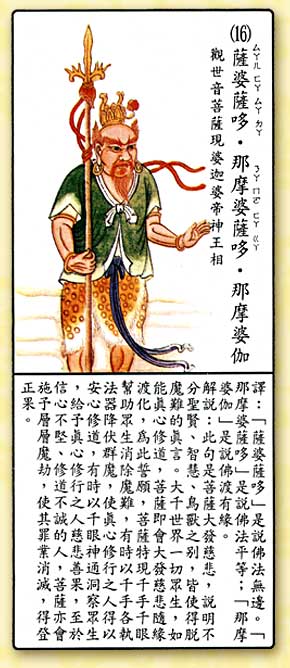 (16)薩婆薩哆・那摩婆薩哆・那摩婆伽
觀世音菩薩現婆迦婆帝神王相
譯：「薩婆薩哆」是說佛法無邊。「
那摩婆薩哆」是說佛法平等；「那摩
婆伽」是說佛渡有緣。
解說：此句是菩薩大發慈悲，說明不
分聖賢、智慧、鳥獸之別，皆使得脫
魔難的真言。大千世界一切眾生，如
能真心修道，菩薩即會大發慈悲隨緣
渡化，為此誓願，菩薩特現千手千眼
幫助眾生消除魔難，有時以千手各執
法器降伏群魔，使真心修行之人得以
安心修道，有時以千眼神通洞察眾生
，給予真心修行之人慈悲善果，至於
信心不堅、修道不誠的人，菩薩亦會
施予層層魔劫，使其罪業消滅，得登
正果。